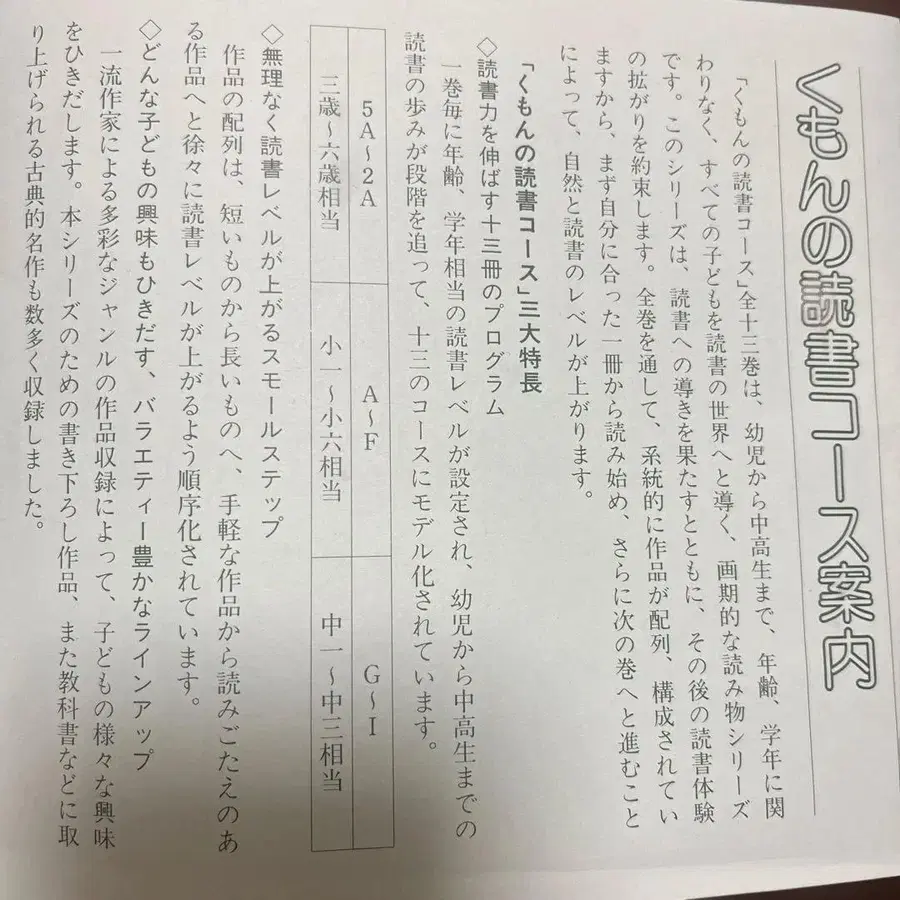 くもんの読書コース案内
「くもんの読書コース」全十三巻は、幼児から中高生まで、年齢、学年に関
わりなく、すべての子どもを読書の世界へと導く、画期的な読み物シリーズ
です。このシリーズは、読書への導きを果たすとともに、その後の読書体験
の拡がりを約束します。全巻を通して、系統的に作品が配列、構成されてい
ますから、まず自分に合った一冊から読み始め、さらに次の巻へと進むこと
によって、自然と読書のレベルが上がります。
「くもんの読書コース」三大特長
◇読書力を伸ばす十三冊のプログラム
一巻毎に年齢、学年相当の読書レベルが設定され、幼児から中高生までの
読書の歩みが段階を追って、十三のコースにモデル化されています。
5A〜2A
A〜F
G〜I
三歳〜六歳相当
小一〜小六相当
中一〜中三相当
◇無理なく読書レベルが上がるスモールステップ
作品の配列は、短いものから長いものへ、手軽な作品から読みごたえのあ
る作品へと徐々に読書レベルが上がるよう順序化されています。
◇どんな子どもの興味もひきだす、バラエティー豊かなラインアップ
一流作家による多彩なジャンルの作品収録によって、子どもの様々な興味
をひきだします。本シリーズのための書き下ろし作品、また教科書などに取
り上げられる古典的名作も数多く収録しました。